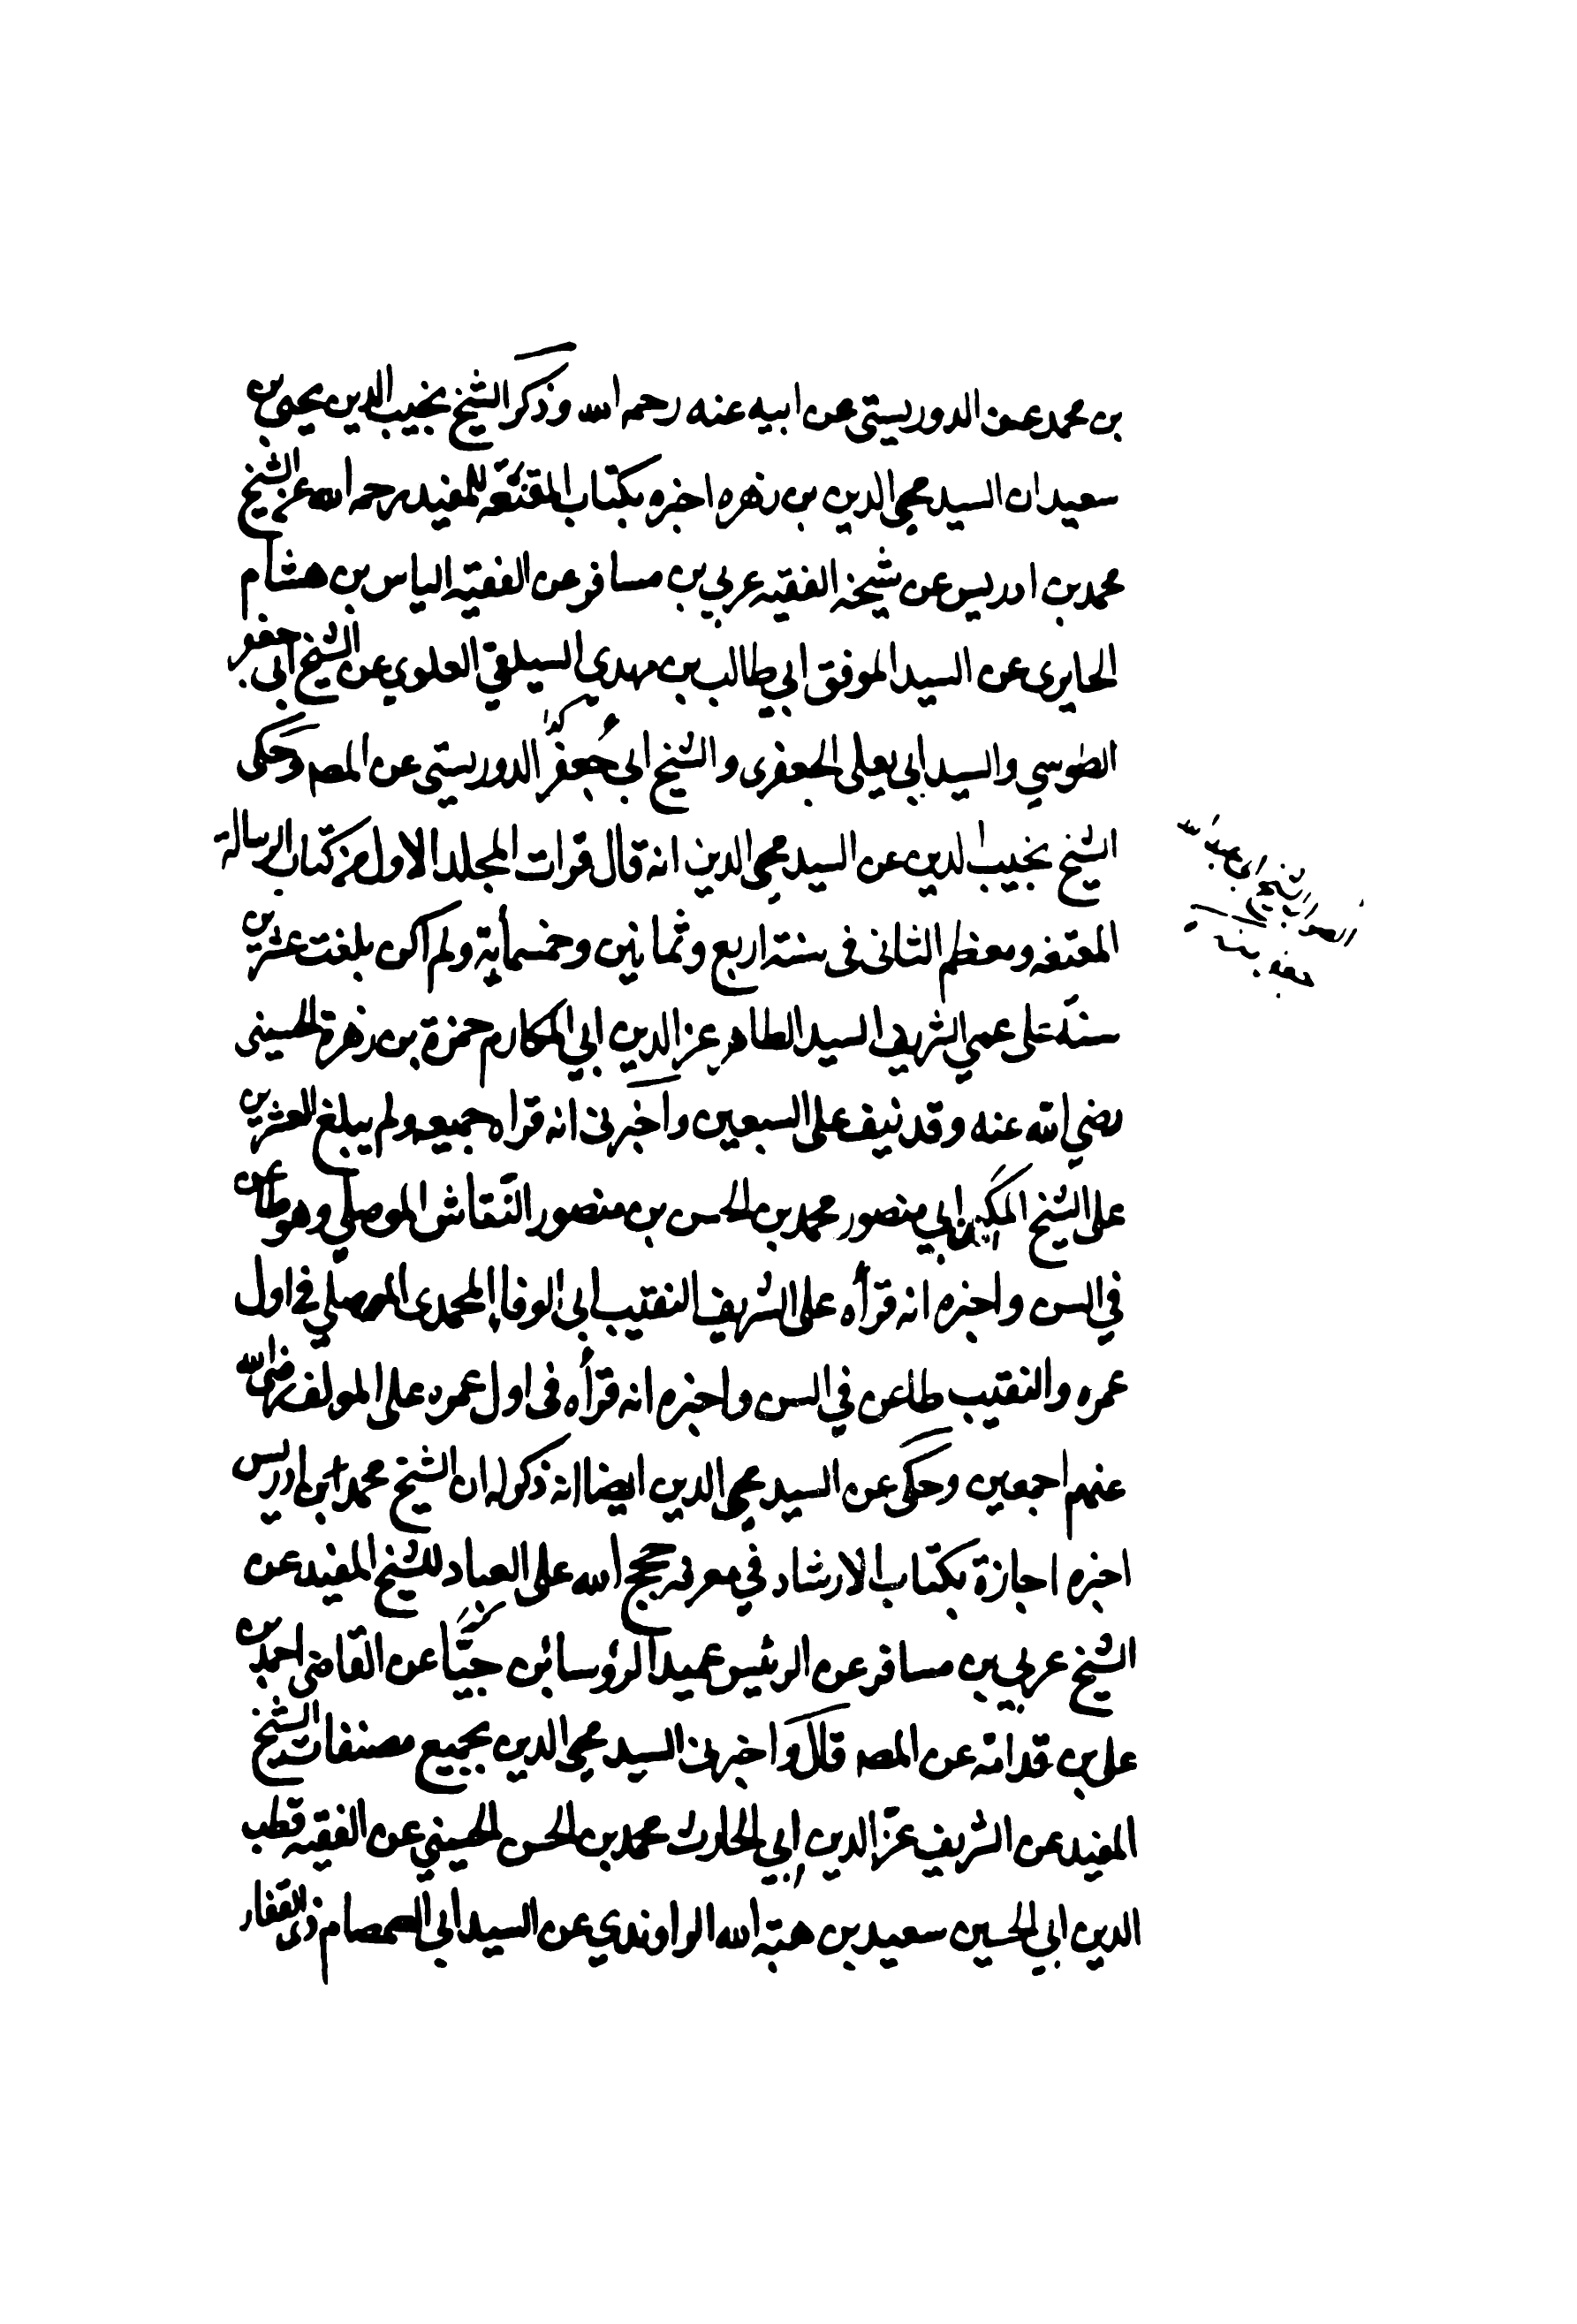 بن محمد عن الدوريستي عن ابيه عنه رحمه الله وذكر الشيخ نجيب الدين يحيى بن
سعيد ان السيد محيي الدين بن زهره اخبره بكتاب المقنعه للمفيد رحمه الله عن الشيخ
محمد بن ادريس عن شيخه الفقيه عربي بن مسافر عن الفقيه الياس بن هشام
الحايرى عن السيد الموفق ابي طالب بن مهدي السيلقي العلوي عن الشيخ ابى جعفر
الطوسي والسيد ابي يعلى الجعفرى والشيخ ابى جعفر كذا الدوريستى عن المصه وحكى
الشيخ نجيب الدين عن السيد محيي الدين انه قال قرات المجلد الاول من كتاب الرسالة
المقنعه ومعظم الثانى فى سنة اربع وثمانين وخمسمأية ولم اكن بلغت عشرين
سنة على عمي الشريف السيد الطاهر عز الدين ابي المكارم حمزة بن زهرة الحسينى
رضي الله عنه وقد نيف على السبعين واخبرنى انه قراه جميعه ولم يبلغ العشرين
على الشيخ المكين ابي منصور محمد بن الحسن بن منصور النقاش الموصلي وهو طاعن
في السن واخبره انه قرأه على الشريف النقيب ابى الوفا المحمدى الموصلي في اول
عمره والنقيب طاعن في السن واخبره انه قرأه فى اول عمره على المولف رضى الله
عنهم اجمعين وحكى عن السيد محيي الدين ايضا انه ذكر له ان الشيخ محمد ابن ادريس
اخبره اجازة بكتاب الارشاد في معرفه حجج الله على العباد للشيخ المفيد عن
الشيخ عربي بن مسافر عن الرئيس عميد الرؤسا بن جيّا عن القاضى احمد بن
على بن قدامه عن المصه قال واخبرنى السيد محيي الدين بجميع مصنفات الشيخ
المفيد عن الشريف عزّ الدين ابي الحارث محمد بن الحسن الحسيني عن الفقيه قطب
الدين ابي الحسين سعيد بن هبة الله الراوندي عن السيد ابى الصمصام ذى الفقار